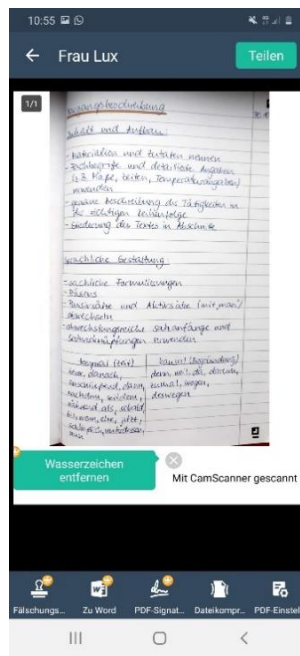 10:55
Frau Lux
Teilen
1/1
Vorgangsbeschreibung
Inhalt und Aufbau:
- Materialien und Zutaten nennen
- Fachbegriffe und detailierte Angaben
(z.B. Maße, Zeiten, Temperaturangaben)
verwenden
- genaue Beschreibung der Tätigkeiten in
der richtigen Reihenfolge
- Gliederung des Textes in Abschnitte
sprachliche Gestaltung:
- sachliche Formulierungen
- Präsens
- Passivsätze und Aktivsätze (mit "man")
abwechseln
- abwechslungsreiche Satzanfänge und
Satzverknüpfungen anwenden
temporal (Zeit)
kausal (Begründung)
danach,
denn, weil, da, darum,
anschließend, dann,
zumal, wegen,
nachdem, seitdem,
deswegen
während, als, sobald,
bevor, ehe, jetzt,
Wasserzeichen
entfernen
Mit CamScanner gescannt
Fälschungs...
Zu Word
PDF-Signat...
Dateikompr...
PDF-Einstel